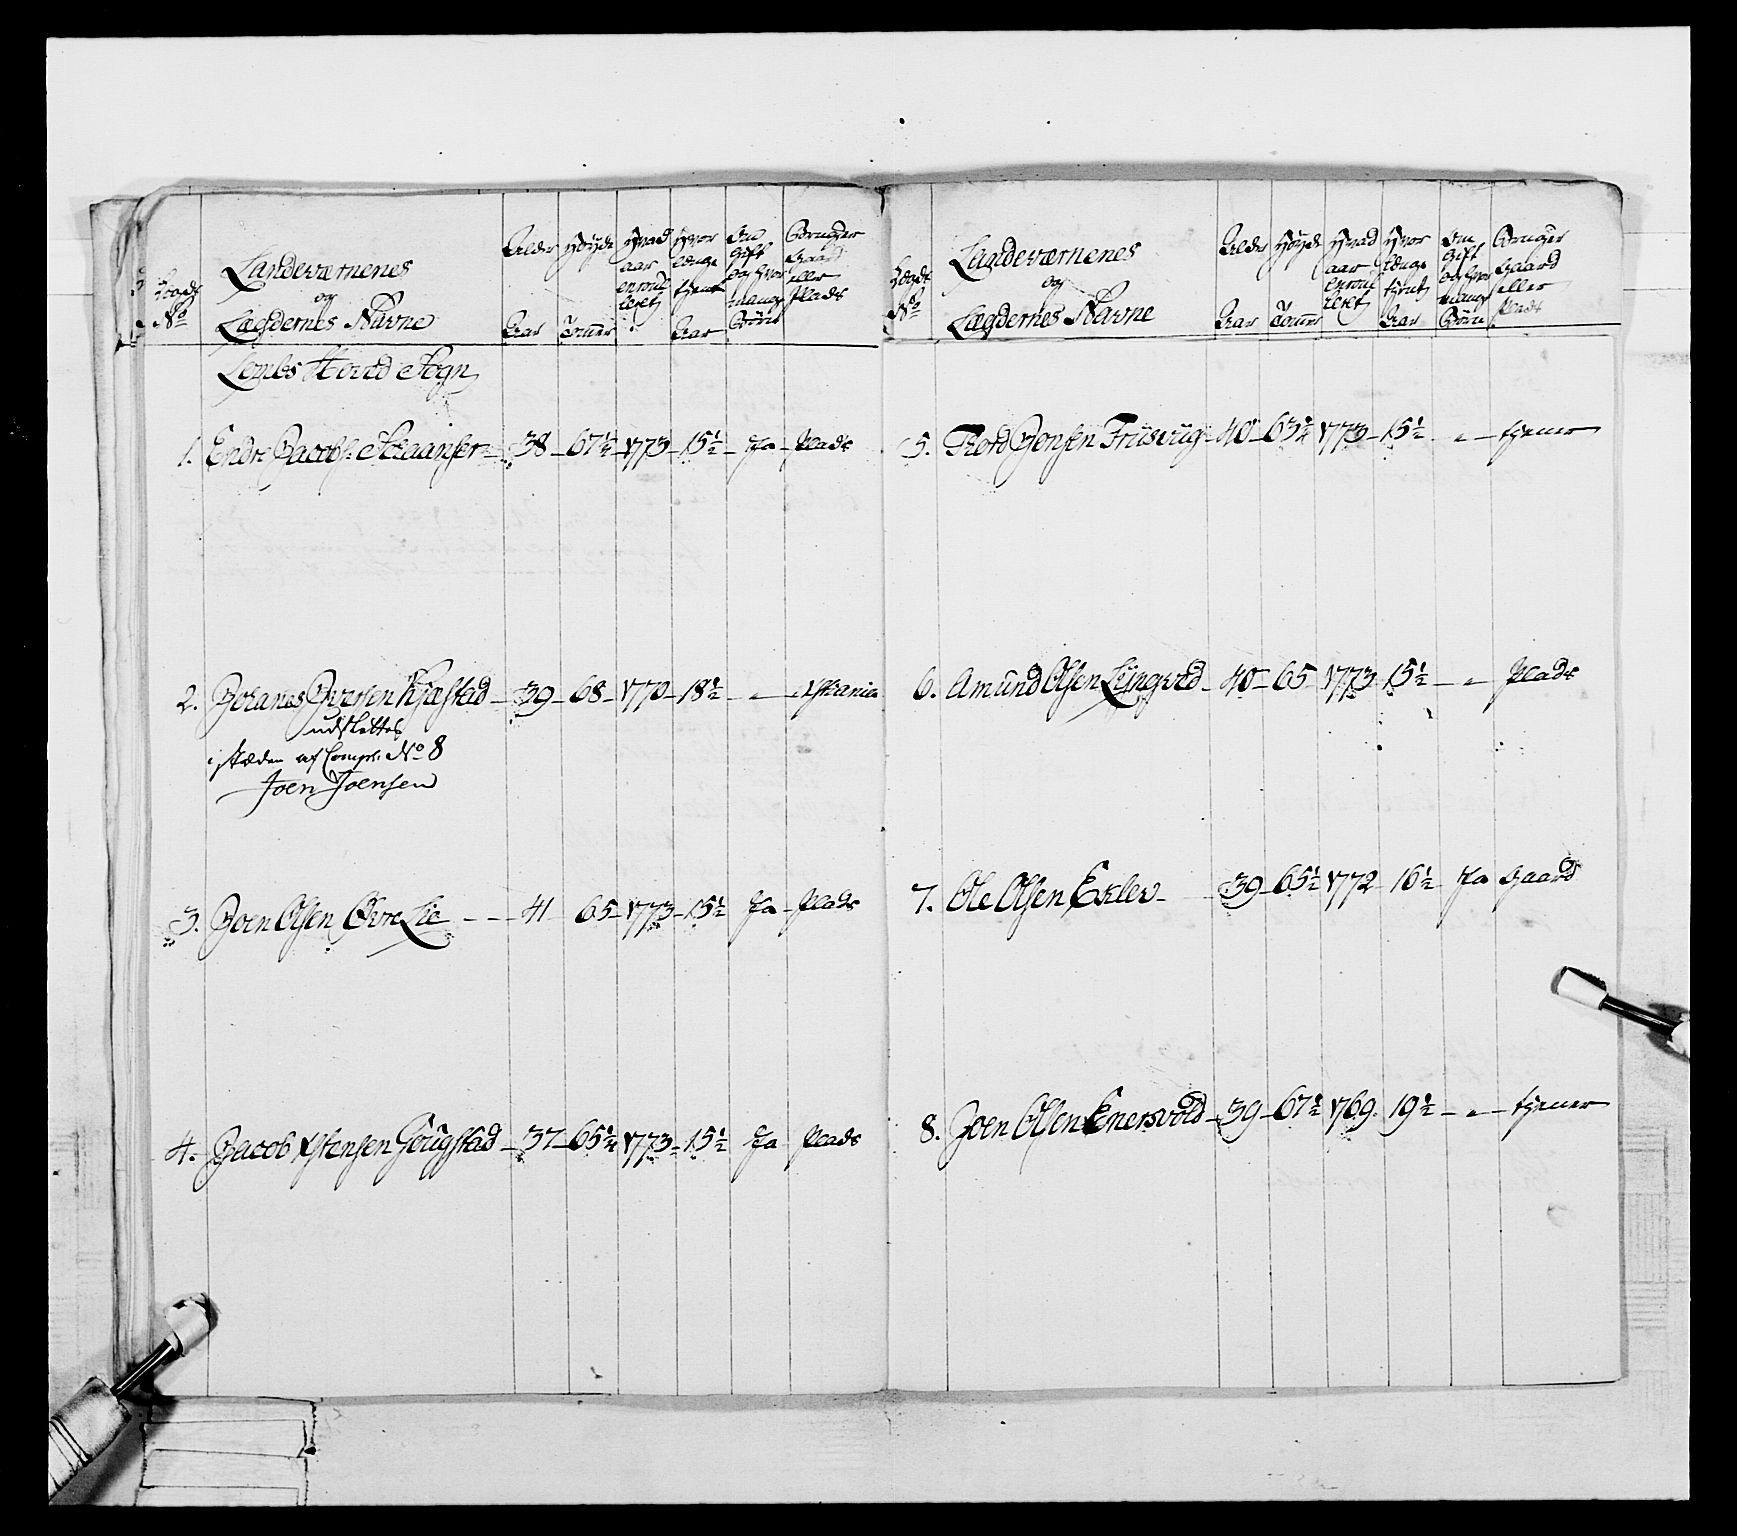 Lægds No
Landeværnenes
og
Lægdernes Navne
Alder Aar
Høyde Tomer
Hvad aar enroulleret
Hvor længe tjent Aar
Om Gift og hvor mange Børn
Bruger Gaard eller Plads
Hoved Sogn
1. Endre Jacobs. 38 - 67½ - 1773 - 15½ - Ja - Plads
2. Johanes Iversen Kjæstad - 39 - 68 - 1770 - 18½ - " -
udslettes
i stæden af Comp: No 8
Joen Joensen
3. Joen Olsen Øvre Lie - - 41 65 - 1773 - 15½ Ja - Plads
4. Jacob Østensen Gougstad - 37 - 65¼ 1773 - 15½ Ja Plads
Lægds No
Landeværnenes
og
Lægdernes Navne
Alder Aar
Høyde Tomer
Hvad aar enroulleret
Hvor længe tjent Aar
Om Gift og hvor mange Børn
Bruger Gaard eller Plads
5. Thord Jensen 40 - 63¾ 1773 - 15½ " - tjener
6. Amund Olsen Lyngved - 40 - 65 - 1773 - 15½ - " - Plads
7. Ole Olsen Eklev - 39 - 65½ 1772 - 16½ Ja Gaard
8. Joen Olsen Enersvold - 39 - 67½ 1769. 19½ - " - tjener